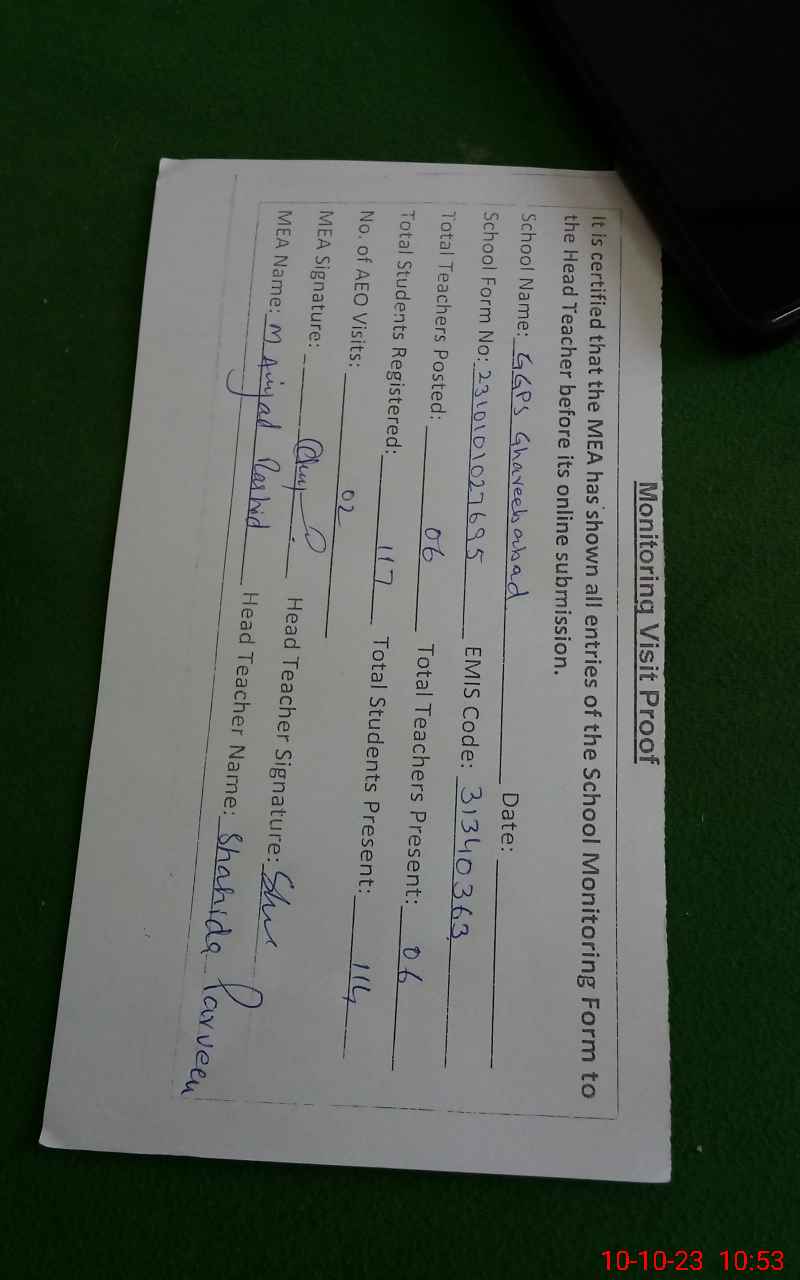 Monitoring Visit Proof
It is certified that the MEA has shown all entries of the School Monitoring Form to
the Head Teacher before its online submission.
School Name: GGPS Ghareebabad Date:
School Form No: 2310101027695 EMIS Code: 31340363
Total Teachers Posted: 06 Total Teachers Present: 06
Total Students Registered: 117 Total Students Present: 114
No. of AEO Visits: 02
MEA Signature: Head Teacher Signature:
MEA Name: M Amjad Rashid Head Teacher Name: Shahida Parveen
10-10-23 10:53